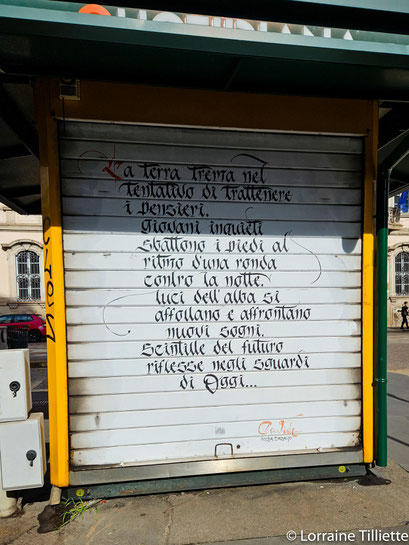 La terra trema nel
tentativo di trattenere
i pensieri.
Giovani inquieti
sbattono i piedi al
ritmo d'una ronda
contro la notte.
luci dell'alba si
affollano e affrontano
nuovi sogni.
Scintille del futuro
riflesse negli sguardi
di Oggi...
© Lorraine Tilliette